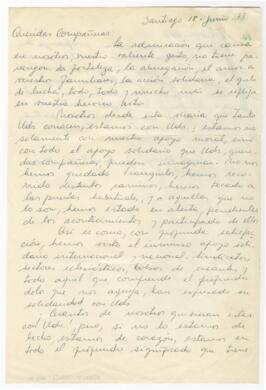 Santiago 18 - Junio
Queridas Compañeras:
La admiración que causa
en nosotros vuestro valiente gesto, no tiene pa-
rangón, la fortaleza, la abnegación, el amor a
vuestros familiares, la acción solidaria, el grito
de lucha, todo, todo y mucho más se refleja
en vuestra heroica
Nosotros desde esta
Uds conocen, estamos con Uds; estamos no
solamente con nuestro apoyo moral sino
con todo el apoyo solidario que Uds, queri-
das compañeras, pueden imaginar. No nos
hemos quedado tranquilos, hemos reco-
rrido distintos caminos, hemos tocado a
las puertas habituales, y a aquellas que no
lo son, hemos estado en alerta, pendientes
de los acontecimientos y participado de ellos
Así es como, con profunda satisfac-
ción, hemos visto el inmenso apoyo soli-
dario internacional y nacional. Sindicatos
sectores eclesiásticos,
todo aquel que comprende el profundo
dolor que nos apena, han expresado su
solidaridad con Uds.
Cuantos de nosotros quisieran estar
con Uds, pues, si no lo estamos de
hecho, estamos de corazón, estamos en
todo el profundo significado que tiene